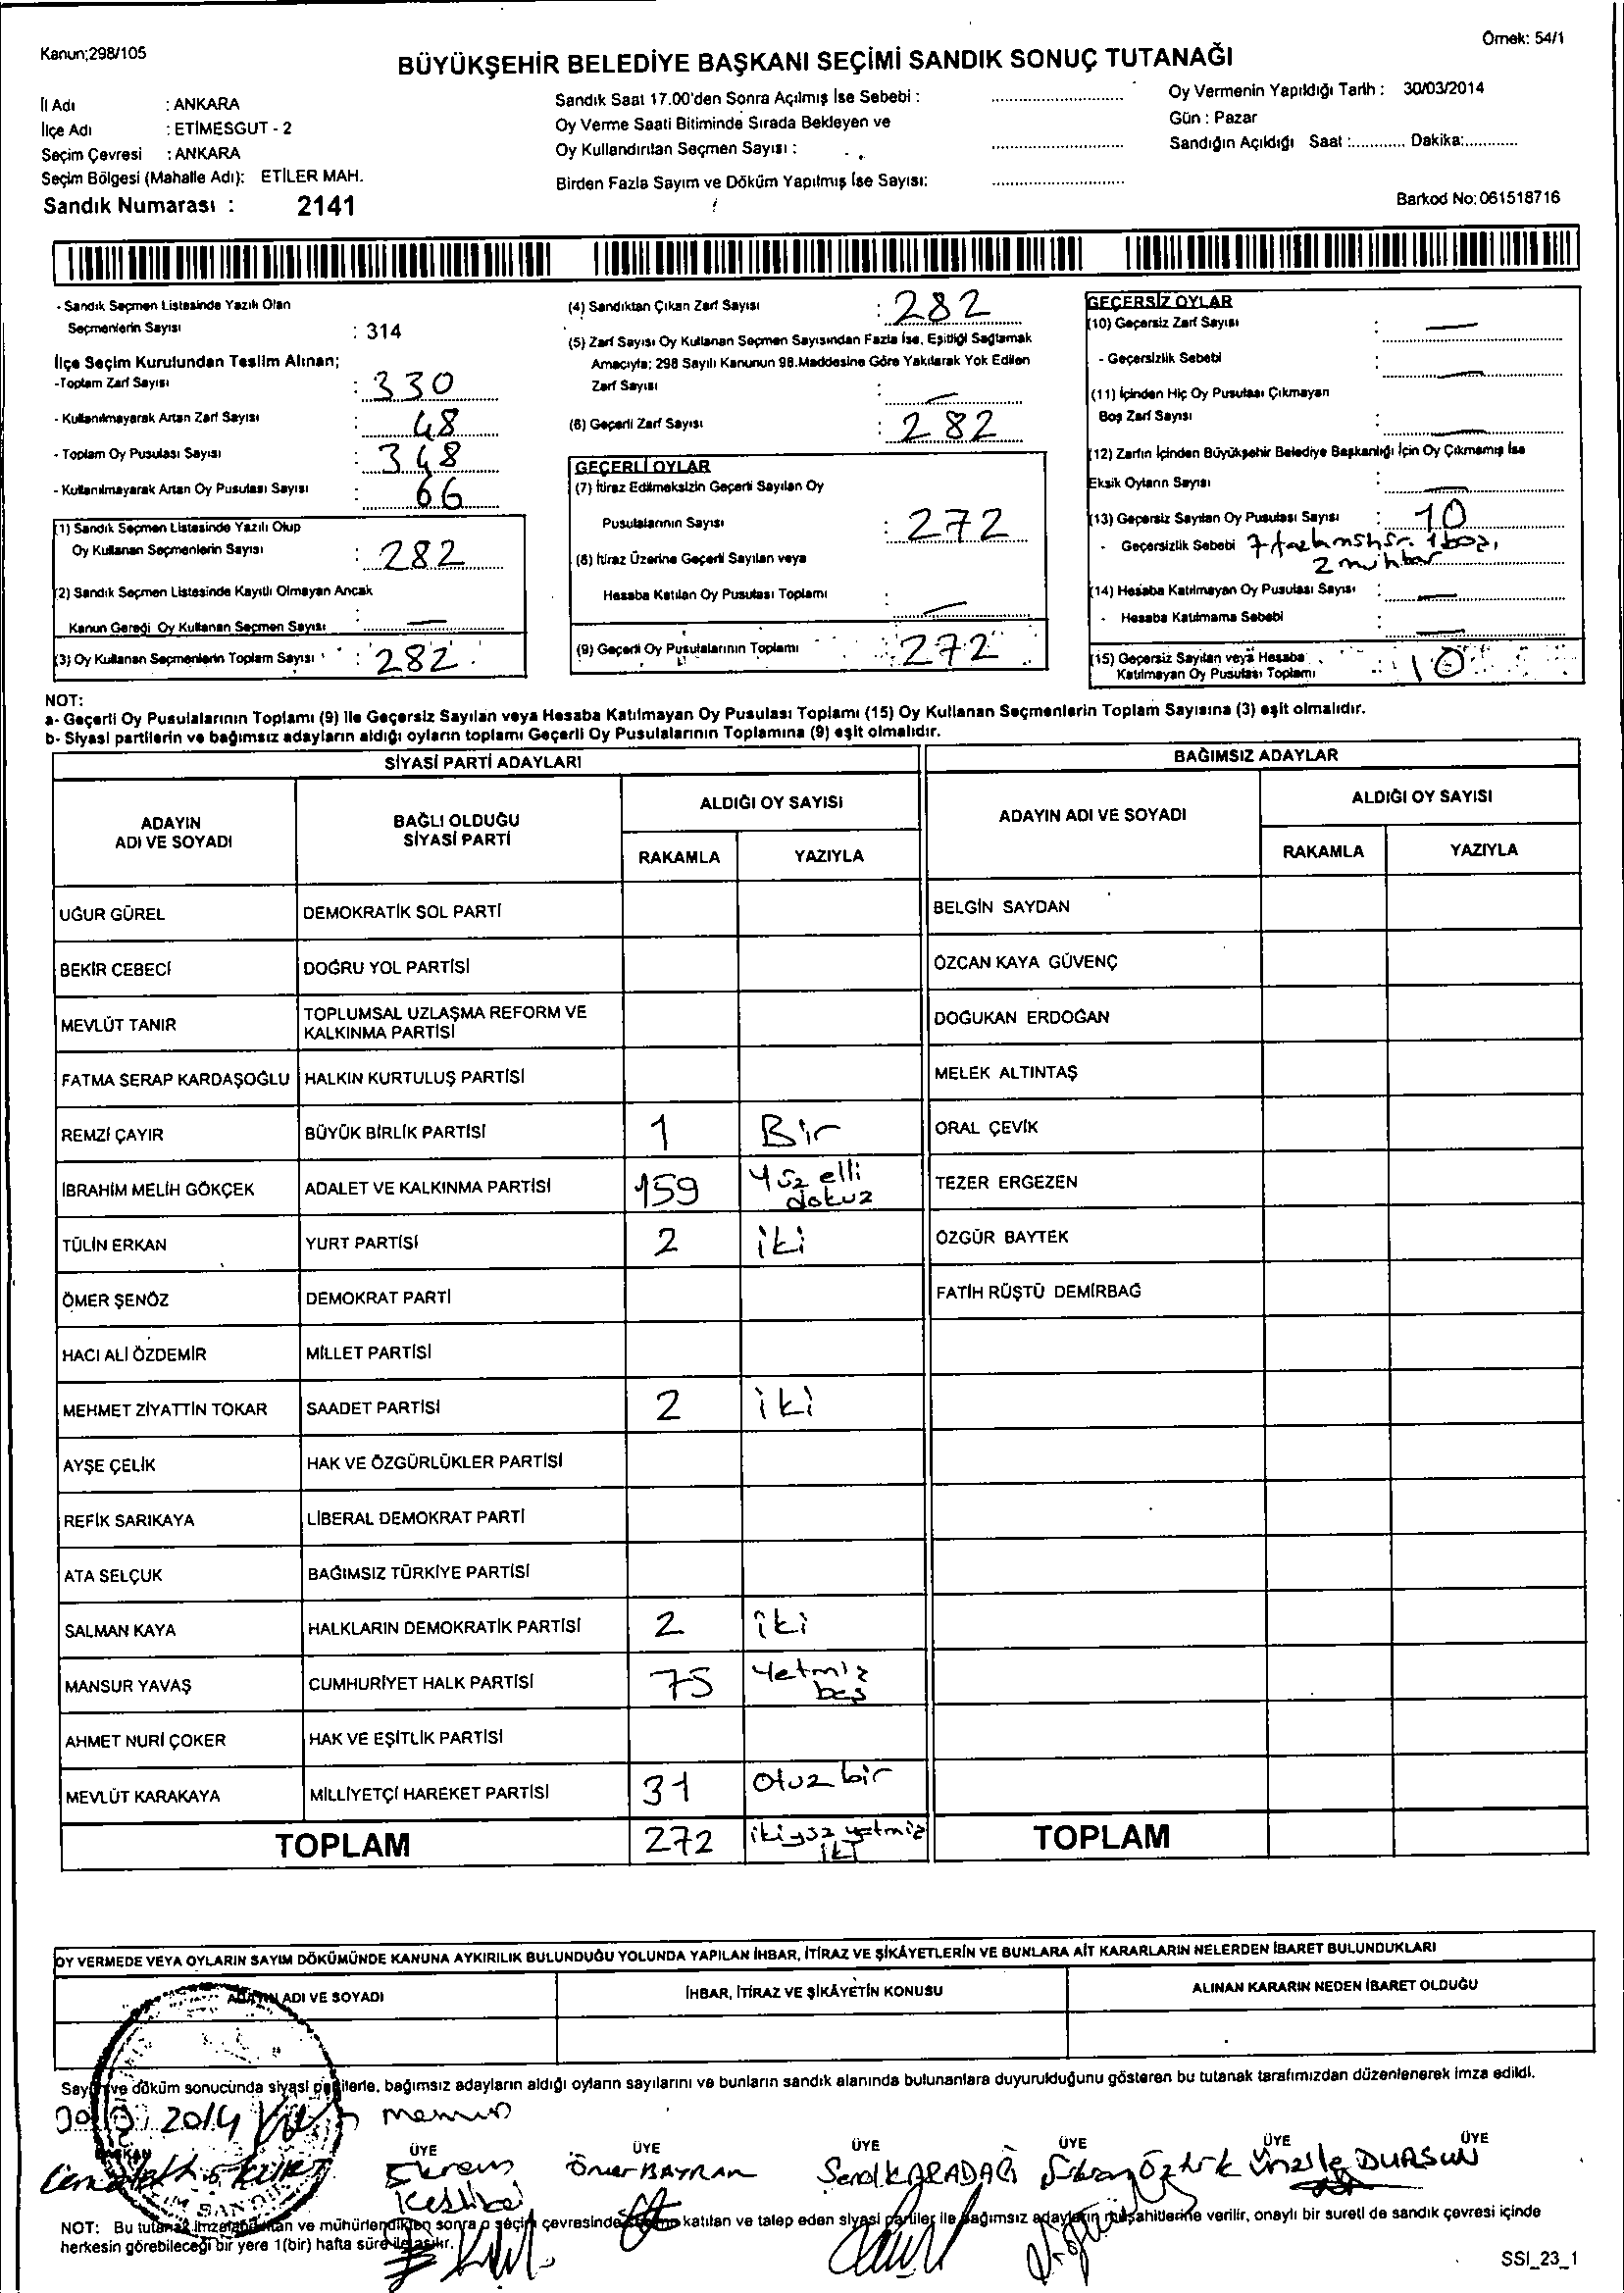 Kanun;298/105
Örnek: 54/1
BÜYÜKŞEHİR BELEDİYE BAŞKANI SEÇİMİ SANDIK SONUÇ TUTANAĞI
İl Adı : ANKARA
İlçe Adı : ETİMESGUT - 2
Seçim Çevresi : ANKARA
Seçim Bölgesi (Mahalle Adı): ETİLER MAH.
Sandık Numarası : 2141
Sandık Saat 17.00'den Sonra Açılmış İse Sebebi :
Oy Verme Saati Bitiminde Sırada Bekleyen ve
Oy Kullandırılan Seçmen Sayısı :
Birden Fazla Sayım ve Döküm Yapılmış İse Sayısı:
Oy Vermenin Yapıldığı Tarih : 30/03/2014
Gün : Pazar
Sandığın Açıldığı Saat :............ Dakika:............
Barkod No: 061518716
- Sandık Seçmen Listesinde Yazılı Olan
Seçmenlerin Sayısı : 314
İlçe Seçim Kurulundan Teslim Alınan;
-Toplam Zarf Sayısı : 330
- Kullanılmayarak Artan Zarf Sayısı : 48
- Toplam Oy Pusulası Sayısı : 348
- Kullanılmayarak Artan Oy Pusulası Sayısı : 66
(1) Sandık Seçmen Listesinde Yazılı Olup
Oy Kullanan Seçmenlerin Sayısı : 282
(2) Sandık Seçmen Listesinde Kayıtlı Olmayan Ancak
Kanun Gereği Oy Kullanan Seçmen Sayısı : —
(3) Oy Kullanan Seçmenlerin Toplam Sayısı : 282
(4) Sandıktan Çıkan Zarf Sayısı : 282
(5) Zarf Sayısı Oy Kullanan Seçmen Sayısından Fazla İse, Eşitliği Sağlamak
Amacıyla; 298 Sayılı Kanunun 98.Maddesine Göre Yakılarak Yok Edilen
Zarf Sayısı : —
(6) Geçerli Zarf Sayısı : 282
GEÇERLİ OYLAR
(7) İtiraz Edilmeksizin Geçerli Sayılan Oy
Pusulalarının Sayısı : 272
(8) İtiraz Üzerine Geçerli Sayılan veya
Hesaba Katılan Oy Pusulası Toplamı : —
(9) Geçerli Oy Pusulalarının Toplamı : 272
GEÇERSİZ OYLAR
(10) Geçersiz Zarf Sayısı : —
- Geçersizlik Sebebi : —
(11) İçinden Hiç Oy Pusulası Çıkmayan
Boş Zarf Sayısı : —
(12) Zarfın İçinden Büyükşehir Belediye Başkanlığı İçin Oy Çıkmamış İse
Eksik Oyların Sayısı : —
(13) Geçersiz Sayılan Oy Pusulası Sayısı : 10
- Geçersizlik Sebebi 7 fazla mühür. 1 boş,
2 muhtar
(14) Hesaba Katılmayan Oy Pusulası Sayısı : —
- Hesaba Katılmama Sebebi : —
(15) Geçersiz Sayılan veya Hesaba
Katılmayan Oy Pusulası Toplamı : 10
NOT:
a- Geçerli Oy Pusulalarının Toplamı (9) ile Geçersiz Sayılan veya Hesaba Katılmayan Oy Pusulası Toplamı (15) Oy Kullanan Seçmenlerin Toplam Sayısına (3) eşit olmalıdır.
b- Siyasi partilerin ve bağımsız adayların aldığı oyların toplamı Geçerli Oy Pusulalarının Toplamına (9) eşit olmalıdır.
SİYASİ PARTİ ADAYLARI
BAĞIMSIZ ADAYLAR
ADAYIN
ADI VE SOYADI
BAĞLI OLDUĞU
SİYASİ PARTİ
ALDIĞI OY SAYISI
RAKAMLA YAZIYLA
ADAYIN ADI VE SOYADI
ALDIĞI OY SAYISI
RAKAMLA YAZIYLA
UĞUR GÜREL DEMOKRATİK SOL PARTİ
BEKİR CEBECİ DOĞRU YOL PARTİSİ
MEVLÜT TANIR TOPLUMSAL UZLAŞMA REFORM VE
KALKINMA PARTİSİ
FATMA SERAP KARDAŞOĞLU HALKIN KURTULUŞ PARTİSİ
REMZİ ÇAYIR BÜYÜK BİRLİK PARTİSİ 1 Bir
İBRAHİM MELİH GÖKÇEK ADALET VE KALKINMA PARTİSİ 159 Yüz elli
dokuz
TÜLİN ERKAN YURT PARTİSİ 2 iki
ÖMER ŞENÖZ DEMOKRAT PARTİ
HACI ALİ ÖZDEMİR MİLLET PARTİSİ
MEHMET ZİYATTİN TOKAR SAADET PARTİSİ 2 iki
AYŞE ÇELİK HAK VE ÖZGÜRLÜKLER PARTİSİ
REFİK SARIKAYA LİBERAL DEMOKRAT PARTİ
ATA SELÇUK BAĞIMSIZ TÜRKİYE PARTİSİ
SALMAN KAYA HALKLARIN DEMOKRATİK PARTİSİ 2 iki
MANSUR YAVAŞ CUMHURİYET HALK PARTİSİ 75 Yetmiş
beş
AHMET NURİ ÇOKER HAK VE EŞİTLİK PARTİSİ
MEVLÜT KARAKAYA MİLLİYETÇİ HAREKET PARTİSİ 31 Otuz bir
TOPLAM 272 ikiyüz yetmiş
iki
BELGİN SAYDAN
ÖZCAN KAYA GÜVENÇ
DOĞUKAN ERDOĞAN
MELEK ALTINTAŞ
ORAL ÇEVİK
TEZER ERGEZEN
ÖZGÜR BAYTEK
FATİH RÜŞTÜ DEMİRBAĞ
TOPLAM
OY VERMEDE VEYA OYLARIN SAYIM DÖKÜMÜNDE KANUNA AYKIRILIK BULUNDUĞU YOLUNDA YAPILAN İHBAR, İTİRAZ VE ŞİKÂYETLERİN VE BUNLARA AİT KARARLARIN NELERDEN İBARET BULUNDUKLARI
ADAYIN ADI VE SOYADI
İHBAR, İTİRAZ VE ŞİKÂYETİN KONUSU
ALINAN KARARIN NEDEN İBARET OLDUĞU
Sayım ve döküm sonucunda siyasi partilerle, bağımsız adayların aldığı oyların sayılarını ve bunların sandık alanında bulunanlara duyurulduğunu gösteren bu tutanak tarafımızdan düzenlenerek imza edildi.
2014 memur
BAŞKAN ÜYE ÜYE ÜYE ÜYE ÜYE ÜYE
Ömer BAYRAM Şenol KARADAĞ Öztürk DURSUN
NOT: Bu tutanak imzalandıktan ve mühürlendikten sonra o seçim çevresinde seçime katılan ve talep eden siyasi partiler ile bağımsız adayların müşahitlerine verilir, onaylı bir sureti de sandık çevresi içinde
herkesin görebileceği bir yere 1(bir) hafta süre ile asılır.
SSI_23_1